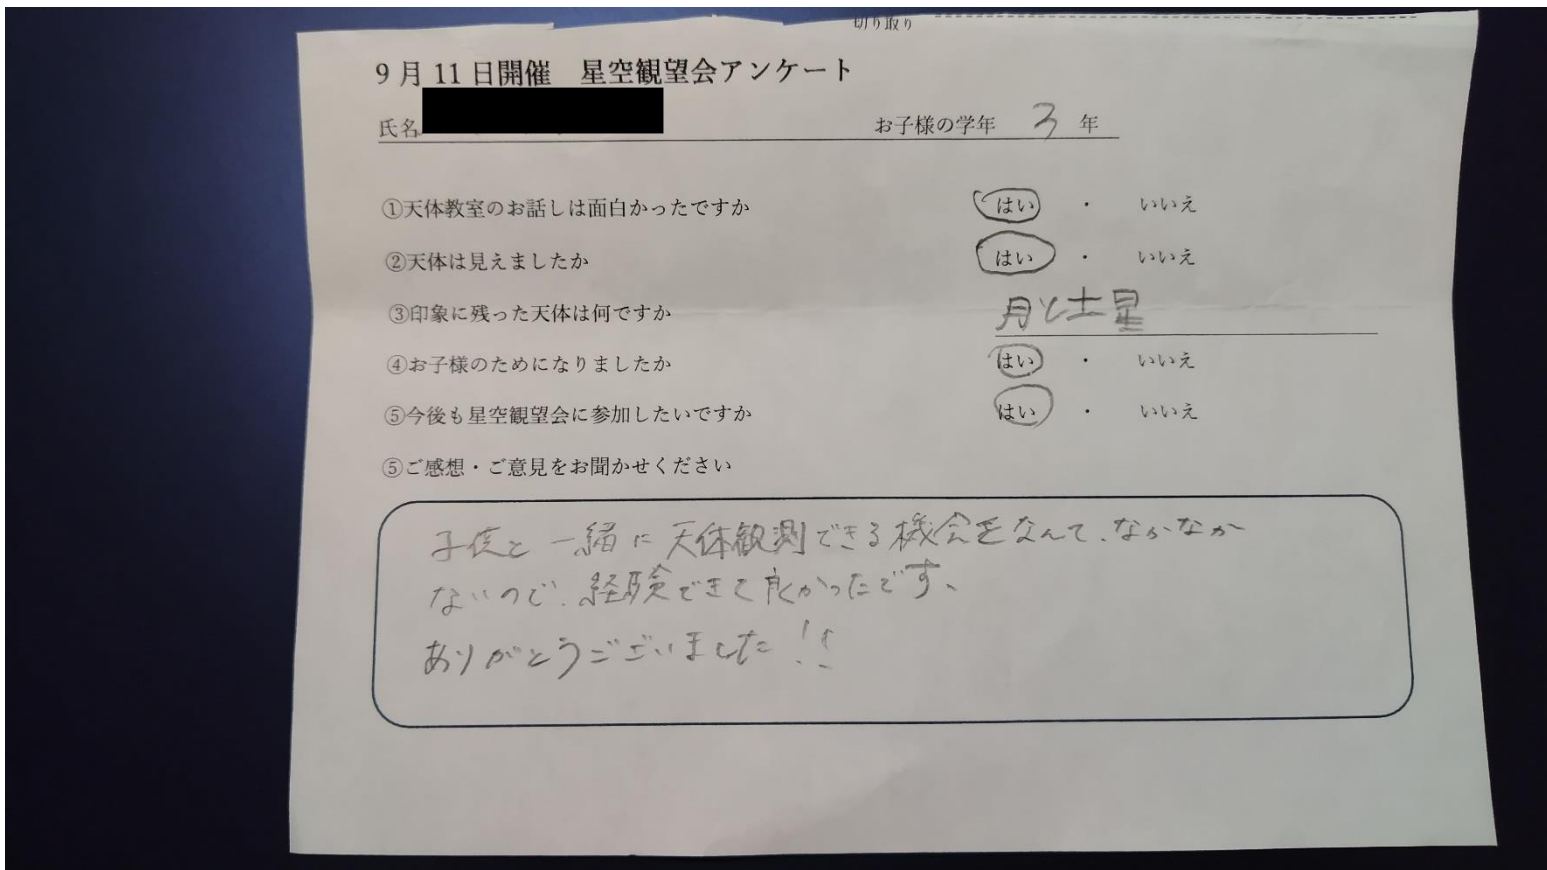 切り取り
9月11日開催　星空観望会アンケート
氏名　お子様の学年 3 年
①天体教室のお話しは面白かったですか　はい ・ いいえ
②天体は見えましたか　はい ・ いいえ
③印象に残った天体は何ですか　月と土星
④お子様のためになりましたか　はい ・ いいえ
⑤今後も星空観望会に参加したいですか　はい ・ いいえ
⑤ご感想・ご意見をお聞かせください
子供と一緒に天体観測できる機会をなんて、なかなか
ないので、経験できて良かったです、
ありがとうございました!!